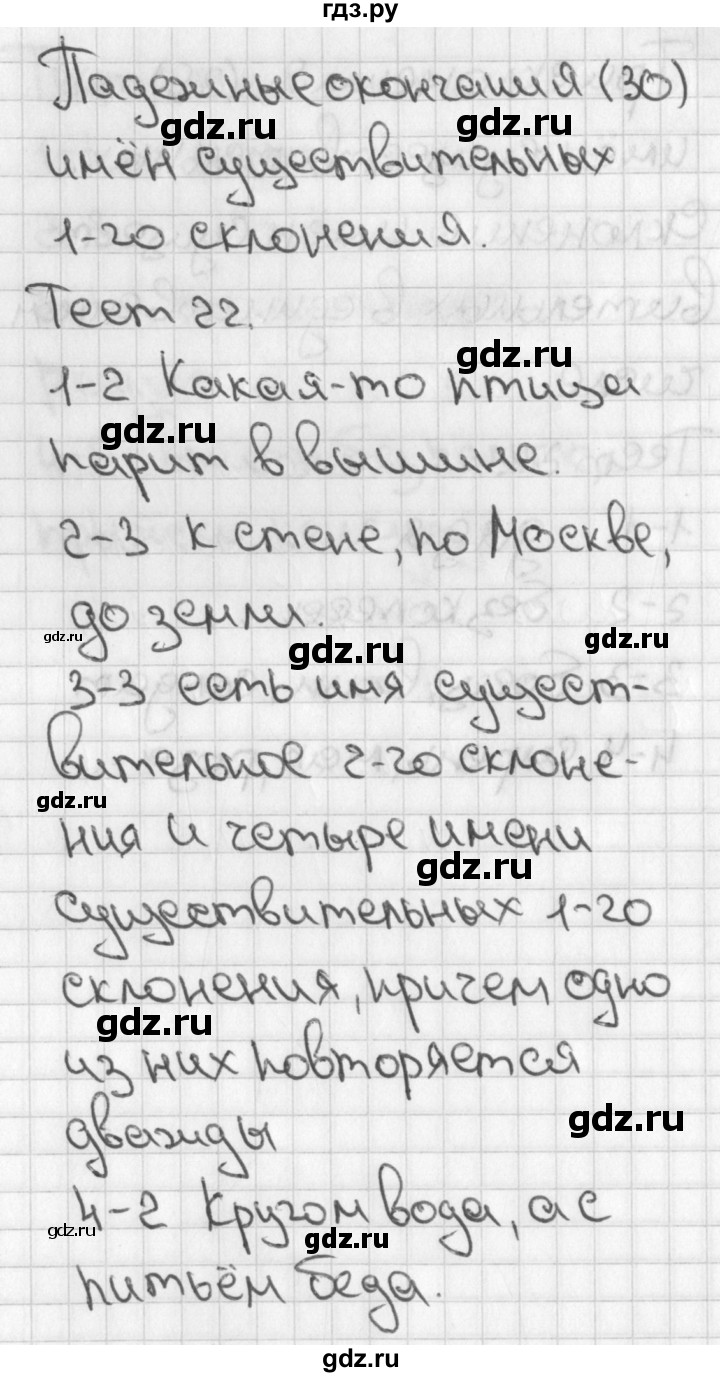 гдз.ру
Падежные окончания (30)
gdz.ru
gdz.ru
имён существительных
1-го склонения.
Тест 22.
gdz.ru
1-2 Какая-то птица
gdz.ru
парит в вышине.
2-3 к стене, по Москве,
до земли.
gdz.ru
gdz.ru
gdz.ru
3-3 есть имя сущест-
вительное 2-го склоне-
gdz.ru
ния и четыре имени
gdz.ru
существительных 1-го
склонения, причем одно
gdz.ru
из них повторяется
gdz.ru
дважды
4-2 Кругом вода, а с
gdz.ru
gdz.ru
питьём беда.
gdz.ru